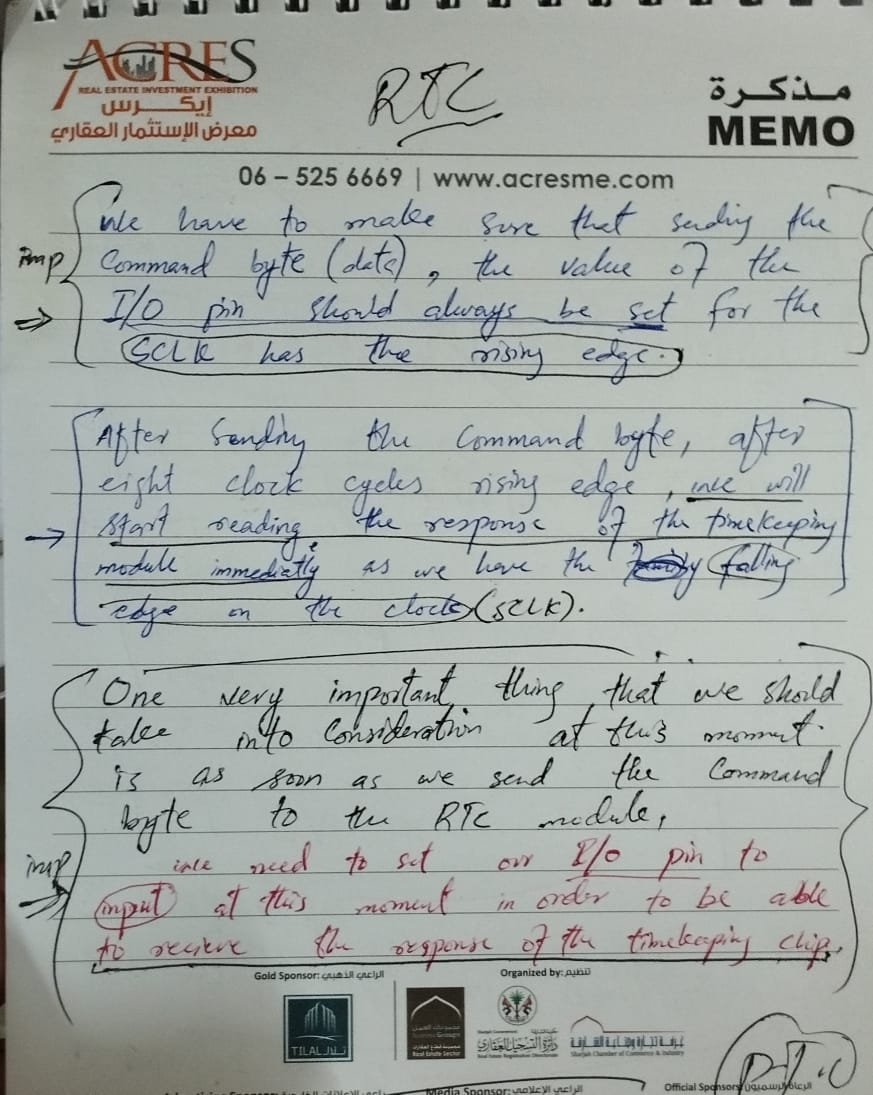 ACRES
REAL ESTATE INVESTMENT EXHIBITION
إيكرس
معرض الإستثمار العقاري
RTC
مذكرة
MEMO
06 – 525 6669 | www.acresme.com
We have to make sure that sending the
imp Command byte (data), the value of the
⇒ I/O pin should always be set for the
SCLK has the rising edge.
After sending the Command byte, after
eight clock cycles rising edge, we will
→ start reading the response of the timekeeping
module immediatly as we have the falling
edge on the clock (SCLK).
One very important thing that we should
take into Consideration at this moment.
is as soon as we send the Command
byte to the RTC module,
imp we need to set our I/O pin to
⇒ input at this moment in order to be able
to recieve the response of the timekeeping chip.
Gold Sponsor: الراعي الذهبي
Organized by: تنظيم
TILAL تـلال
Real Estate Sector
دائرة التسجيل العقاري
Real Estate Registration Directorate
غرفة تجارة وصناعة الشارقة
Sharjah Chamber of Commerce & Industry
P.T.O
Media Sponsor: الراعي الإعلامي
Official Sponsors: الرعاة الرسميون